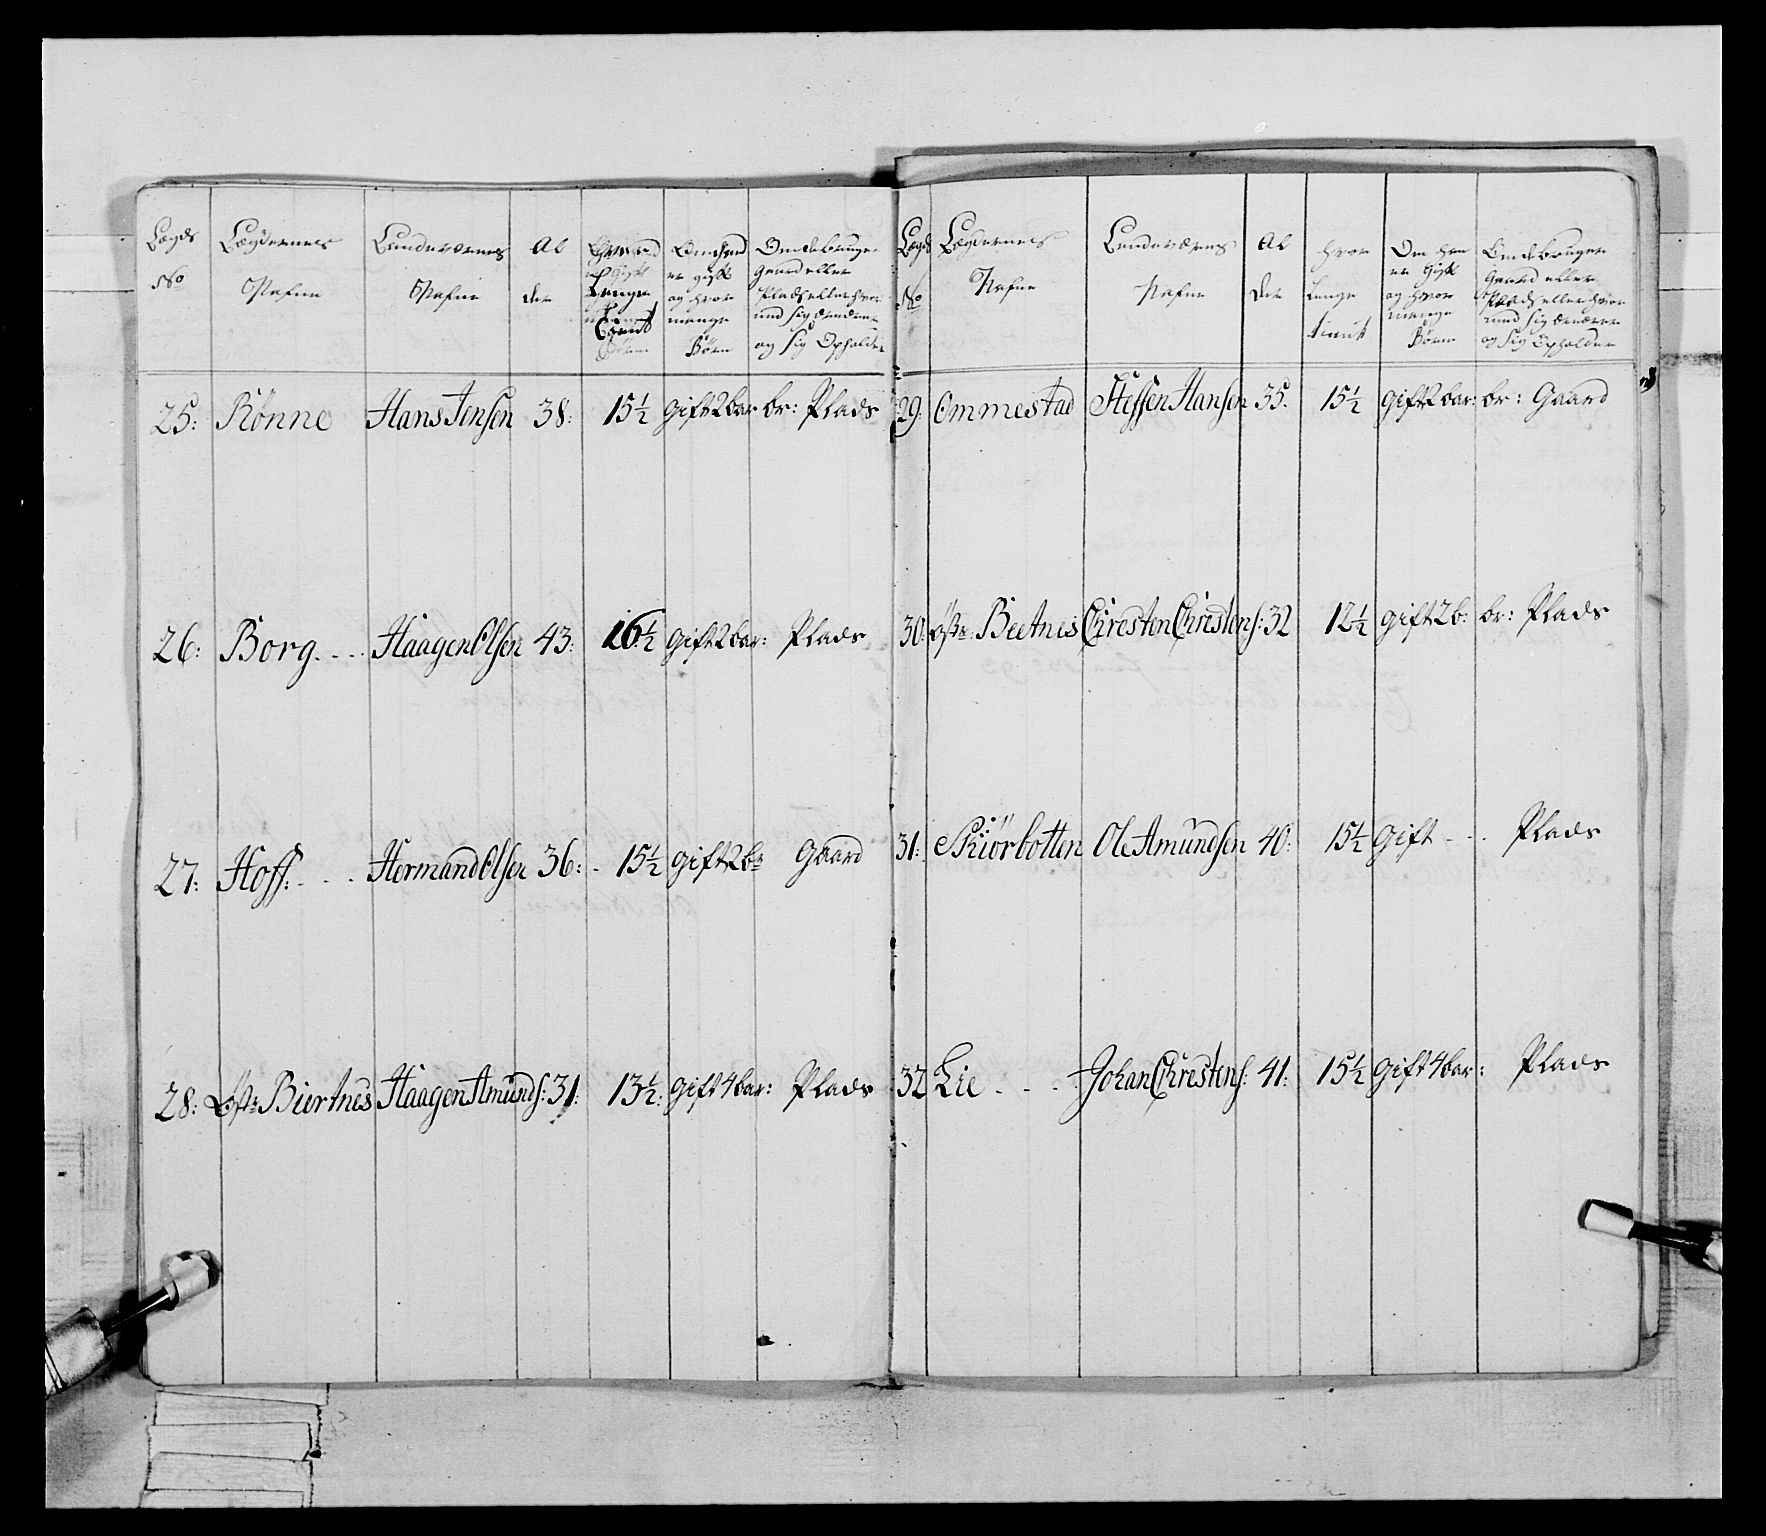 Lægds No | Lægdernes Nafne | Landeværnes Nafne | Al der | | Om hand er gift og hvor mange Börn | Om de bruger Gaard eller Plads eller hvor med sig ernærer og sig Opholder
25: Rönne Hans Jensen 38: 15½ gift 2 bar br: Plads
26: Borg. - - Haagen Olsen 43: 16½ gift 2 bar: Plads
27: Hoff: - - - Hermand Olsen 36: - 15½ gift 2 br Gaard
28: Øst: Biertnes Haagen Amunds: 31: 13½: gift 4 bar: Plads
Lægds No | Lægdernes Nafne | Landeværnes Nafne | Al der | hvor Længe tient | Om han er gift og hvor mange Börn | Om de bruger Gaard eller Plads eller hvor med sig ernærer og sig Opholder
29. Ommestad Steffen Hansen 35. 15½ gift 2 bar: br: Gaard
30: Øst: Beetnes Christen Christens: 32 12½ gift 2 b: br: Plads
31: Skiörbotten Ole Amundsen 40: 15½ gift - - - Plads
32 Lie - - - Johan Christens: 41: 15½ gift 4 bar: Plads